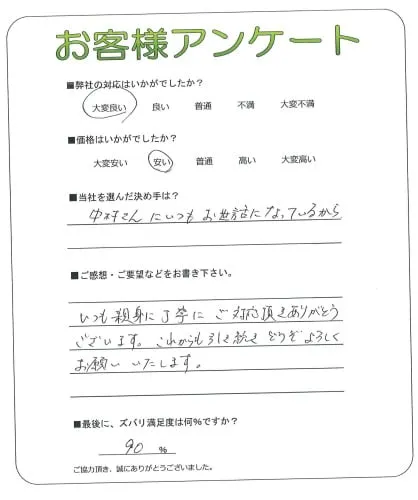 お客様アンケート
■弊社の対応はいかがでしたか？
大変良い 良い 普通 不満 大変不満
■価格はいかがでしたか？
大変安い 安い 普通 高い 大変高い
■当社を選んだ決め手は？
中村さんにいつもお世話になっているから
■ご感想・ご要望などをお書き下さい。
いつも親身に丁寧にご対応頂きありがとう
ございます。これからも引き続きどうぞよろしく
お願いいたします。
■最後に、ズバリ満足度は何%ですか？
90 %
ご協力頂き、誠にありがとうございました。